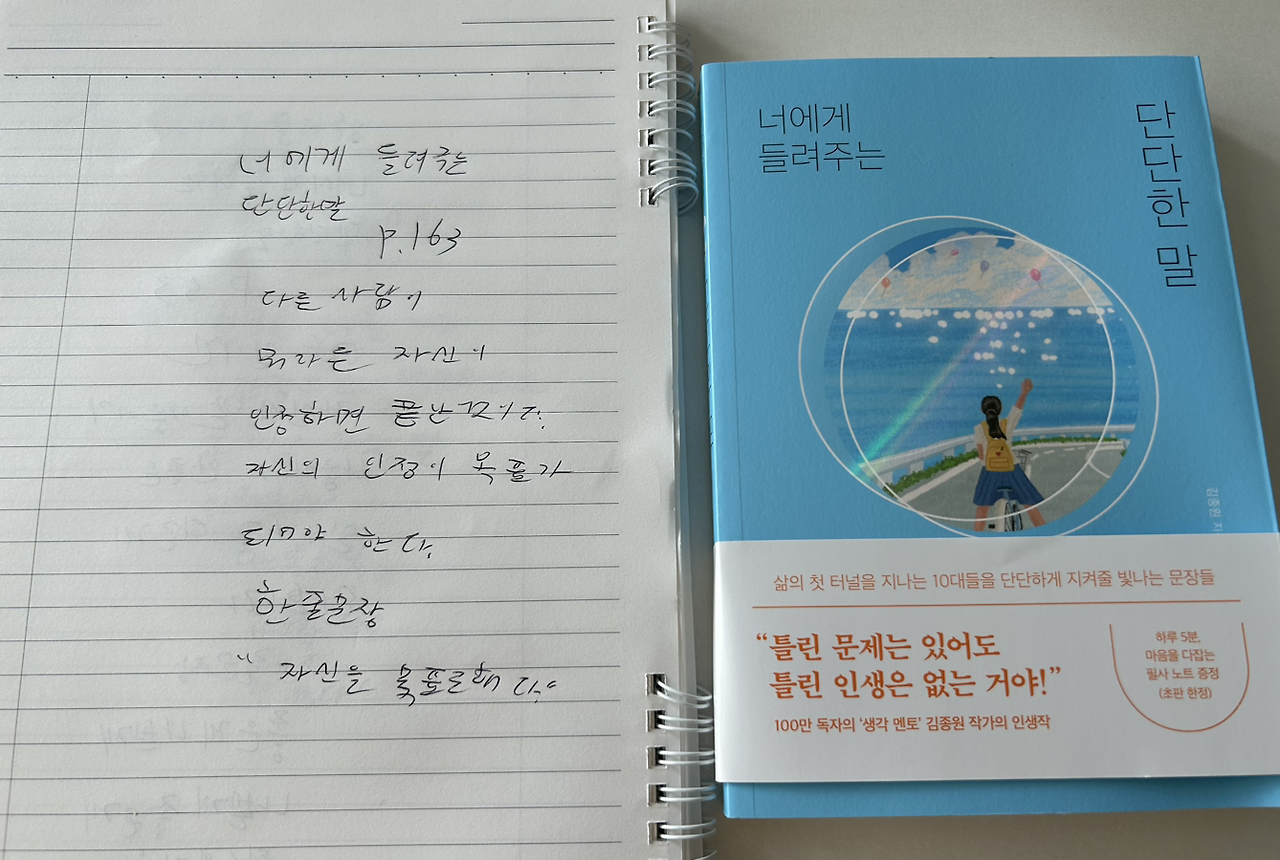 너에게 들려주는
단단한말
p.163
다른 사람이
뭐라든 자신이
인정하면 끝난거이다.
자신의 인정이 목표가
되어야 한다.
한줄문장
" 자신을 목표로해 다."
너에게
들려주는
단단한 말
김종원 지
삶의 첫 터널을 지나는 10대들을 단단하게 지켜줄 빛나는 문장들
“틀린 문제는 있어도
틀린 인생은 없는 거야!”
100만 독자의 ‘생각 멘토’ 김종원 작가의 인생작
하루 5분,
마음을 다잡는
필사 노트 증정
(초판 한정)